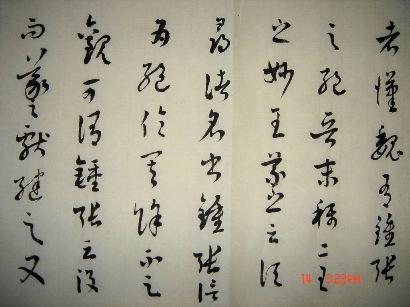 者漢魏有鍾張
之絕晉末稱二王
之妙王羲之云頃
尋諸名書鍾張信
為絕倫其餘不足
觀可謂鍾張云沒
而羲獻繼之又
14 3:22PM